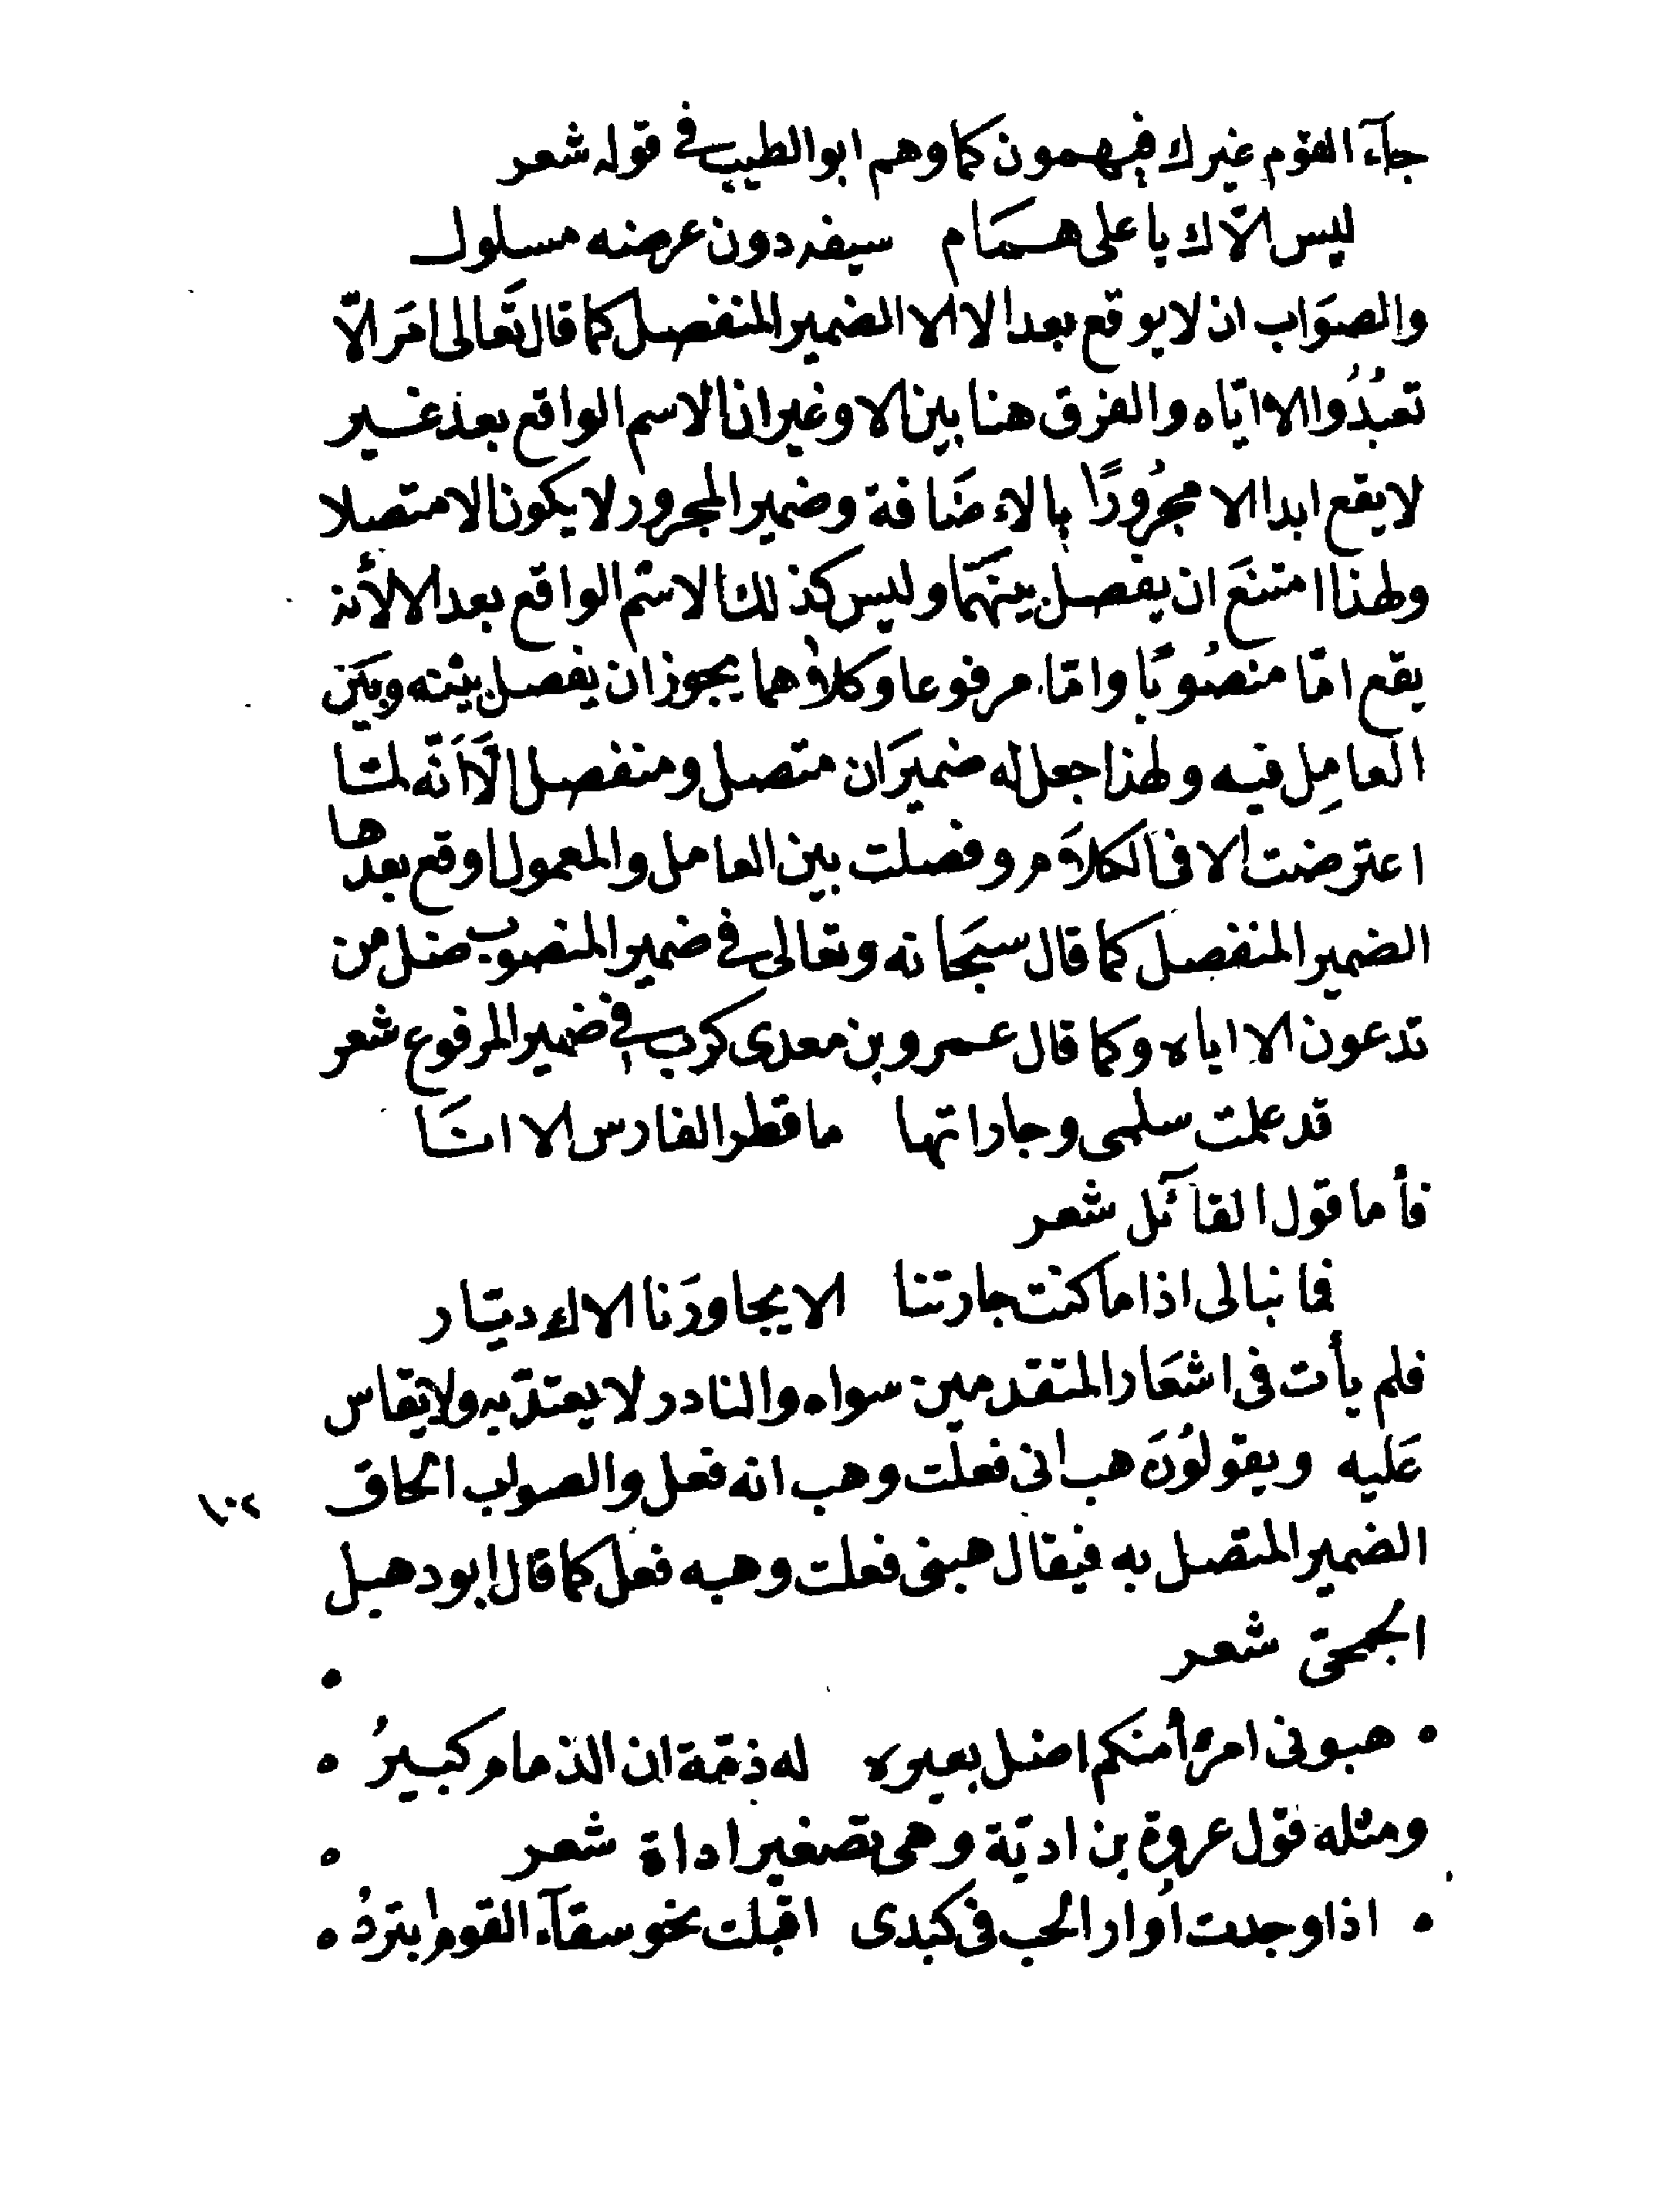 جآء القوم غيرك فيهمون كما وهم ابو الطيب في قوله شعر
ليس الّاك يا على همَام سيفه دون عرضه مسلول
والصوَاب ان لا يوقع بعد الا الا الضمير المنفصل كما قال تعَالى امَر الّا
تعبُدُوا الا ايّاه والفرق هنا بين الا وغير ان الاسم الواقع بعد غير
لا يقع ابدا الا مجرُورًا بالاءضَافة وضمير المجرور لا يكون الا متصلا
ولهذا امتنعَ ان يفصل بينهَما وليس كذلك الاسم الواقع بعد الا لأنه
يقع امّا منصُوبًا وامّا مرفوعا وكلاهما يجوز ان يفصل بينه وبيَن
العامِل فيه ولهذا جعل له ضميرَان متصل ومنفصل الَّا اَنّه لمّا
اعترضت الا فى الكلاَم وفصلت بين العامل والمعمول اوقع بعدها
الضمير المنفصل كما قال سبحَانه وتعالى في ضمير المنصوب ضل من
تدعون الا اياه وكما قال عمرو بن معدى كرب في ضمير المرفوع شعر
قد علمت سلمى وجاراتها ما قطر الفارس الا انَا
فأما قول القآئل شعر
فما نبالى اذا ما كنت جارتنا الا يجاورَنا الاك ديّار
فلم يأت فى اشعَار المتقدمين سواه والنادر لا يعتدّ به ولا يقاس
عَليه ويقولُونَ هب انى فعلت وهب انه فعل والصواب الحاق
١٠٢
الضمير المتصل به فيقال هبنى فعلت وهبه فعل كما قال ابو دهبل
الجمحىّ شعر
هبونى امرأ منكم اضل بعيره له ذمّة ان الذمام كبيرُ
ومثله قول عروة بن اديّة وهى تصغير اداة شعر
اذا وجدت اُوار الحب فى كبدى اقبلت نحو سقآء القوم ابتردُ